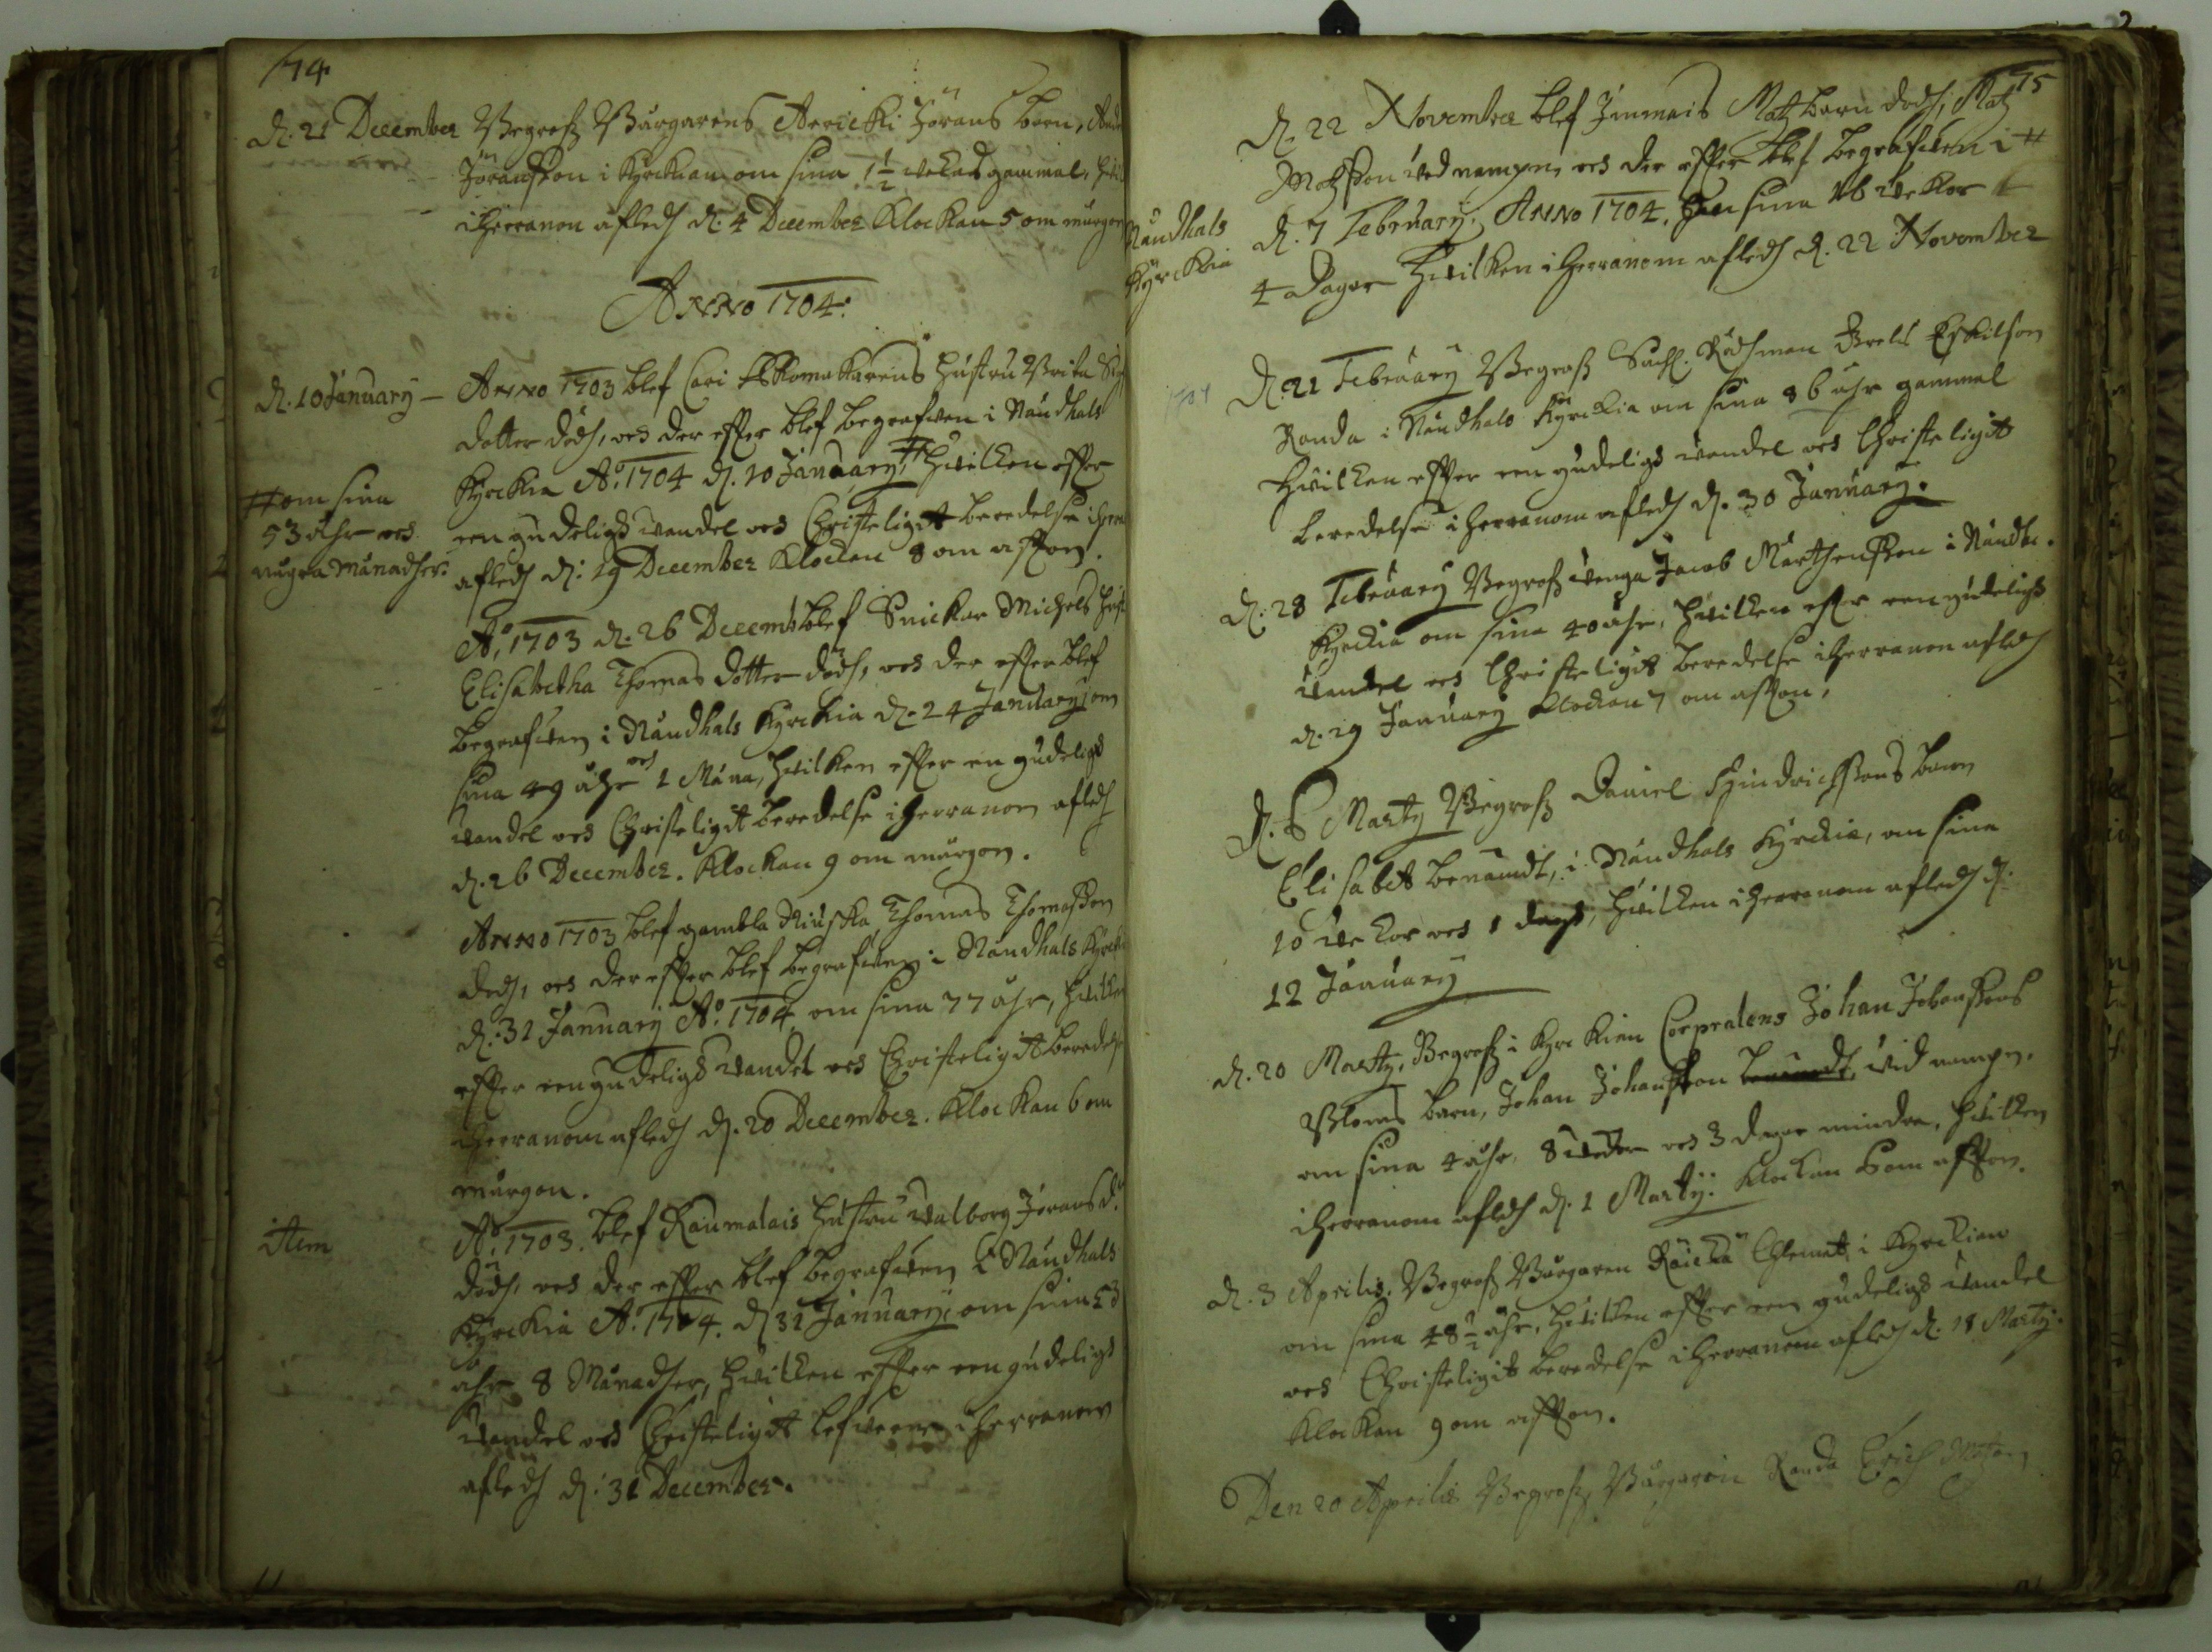 74
d. 21 December Begrofz Bürgarens Aericki Jörans barn,
Jöransson i kyrckian om sina 1 1/2 wekas gammal,
i herranom afledh d. 4 December Klockan 5 om mürgon
ANNO 1704:
d. 10 January — ANNO 1703 blef Cari hüstru Brita
dotter dödh, och der efter blef begrafwen i Naudhals
Kyrckia Ao. 1704 d. 10 January, # hwilken efter
# om sina
53 åhr och
nugra Månadher.
een gudeligh wandel och Christeligit beredelse i herra
afledh d. 19 December Klockan 8 om afton.
Ao. 1703 d. 26 Decemb blef Snickar Michels hüst
Elisabetha Thomas dotter dödh, och der efter blef
begrafwen i Naudhals Kyrckia d. 24 January om
sina 49 åhr och 1 Måna, hwilken efter en gudeligh
wandel och Christeligit beredelse i herranom afledh
d. 26 December. Klockan 9 om mürgon.
ANNO 1703 blef gambla Thomas Thomasson
dödh, och der efter blef begrafwen i Naudhals Kyrcki
d. 31 January Ao. 1704 om sina 77 åhr, hwilken
efter een gudeligh wandel och Christeligit beredelse
i herranom afledh d. 20 December. Klockan 6 om
mürgon.
item
Ao. 1703. blef Raumalais hüstru Walborg Jörans d.
dödh, och der efter blef begrafwen i Naudhals
Kyrckia Ao. 1704. d. 31 January, om sina 53
åhr 8 Månadher, hwilken efter een gudeligh
wandel och Christeligit lefwerne i herranom
afledh d. 31 December.
75
d. 22 November blef Immais Matz barn dödh, Matz
Matzson wed nampn, och der efter blef begrafwen i #
# Naudhals
Kyrckia
d. 7 February, ANNO 1704. sina 16 wekor
4 Dagar hwilken i herranom afledh d. 22 November
1704
d. 21 February Begrofz Sahl. Rådhman Brels Eskilson
Randa i Naudhals Kyrckia om sina 86 åhr gammal
hwilken efter een gudeligh wandel och Christeligit
beredelse i herranom afledh d. 30 January.
d. 28 February Begrofz unga Jacob Mårthensson i Naudh.
Kyrckia om sina 40 åhr, hwilken efter een gudeligh
wandel och Christeligit beredelse i herranom afledh
d. 29 January Klockan 7 om afton.
d. 6 Marty Begrofz Daniel Hindrichssons barn
Elisabet benämdt, i Naudhals Kyrckia, om sina
10 wekor och 1 dagh, hwilken i herranom afledh d.
12 January
d. 20 Marty, Begrofz i Kyrckian Corpralens Johan Johanssons
Bloms barn, Johan Johansson benämdt, wid nampn,
om sina 4 åhr, 8 wekor och 3 dagar mindre, hwilken
i herranom afledh d. 1 Marty. Klockan 6 om afton.
d. 3 Aprilis. Begrofz Bürgaren Räickä Clemet i Kyrckian
om sina 48 1/2 åhr, hwilken efter een gudeligh wandel
och Christeligit beredelse i herranom afledh d. 18 Marty.
Klockan 9 om afton.
Den 20 Aprilis Begrofz Bürgaren Randa Erich Matzson